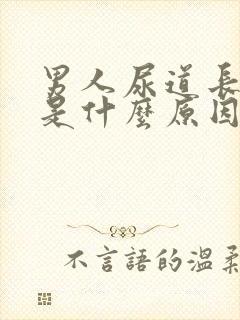 男人尿道長
是什麼原因
不言語的溫柔